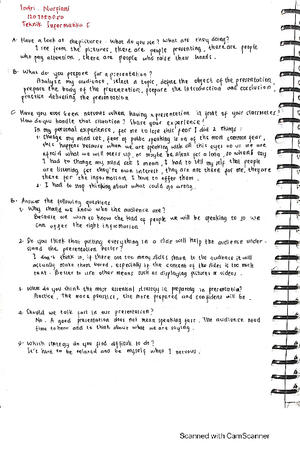 Indri Nurpiani
Teknik Informatika
A. Have a look at the pictures. What do you see? What are they doing?
I see from the pictures, there are people presenting, there are people
who pay attention, there are people who raise their hands.
B. What do you prepare for a presentation?
Analyze my audience, select a topic, define the object of the presentation,
prepare the body of the presentation, prepare the introduction and conclusion,
practice delivering the presentation
C. Have you ever been nervous when having a presentation in front of your classmates?
How do you handle that situation? Share your experience!
In my personal experience, for me to lose this fear I did 2 things:
1. Change my mind set, fear of public speaking is one of the most common fear,
this happens because when we are speaking with all this eyes on us we are
afraid what we will mess up, or maybe be silent for a long, so what I say
I had to change my mind set I mean, I had to tell my self that people
are listening for they're own interest, they are not there for me, they are
there for the information I have to offer them.
2. I had to stop thinking about what could go wrong.
D. Answer the following questions
1. Why should we know who the audience are?
Because we want to know the kind of people we will be speaking to so we
can offer the right information
2. Do you think that putting everything in a slide will help the audience under-
stand the presentation better?
I don't think so, if there are too many slides shown to the audience it will
actually make them bored, especially if the content of the slides is too much
text. Better to use other means such as displaying pictures or videos.
3. What do you think the most essential strategy in preparing in presentation?
Practice, the more practice, the more prepared and confident will be.
4. Should we talk fast in our presentation?
No. A good presentation does not mean speaking fast. The audience need
time to hear and to think about what we are saying.
5. Which strategy do you find difficult to do?
It's hard to be relaxed and be myself when I nervous.
Scanned with CamScanner